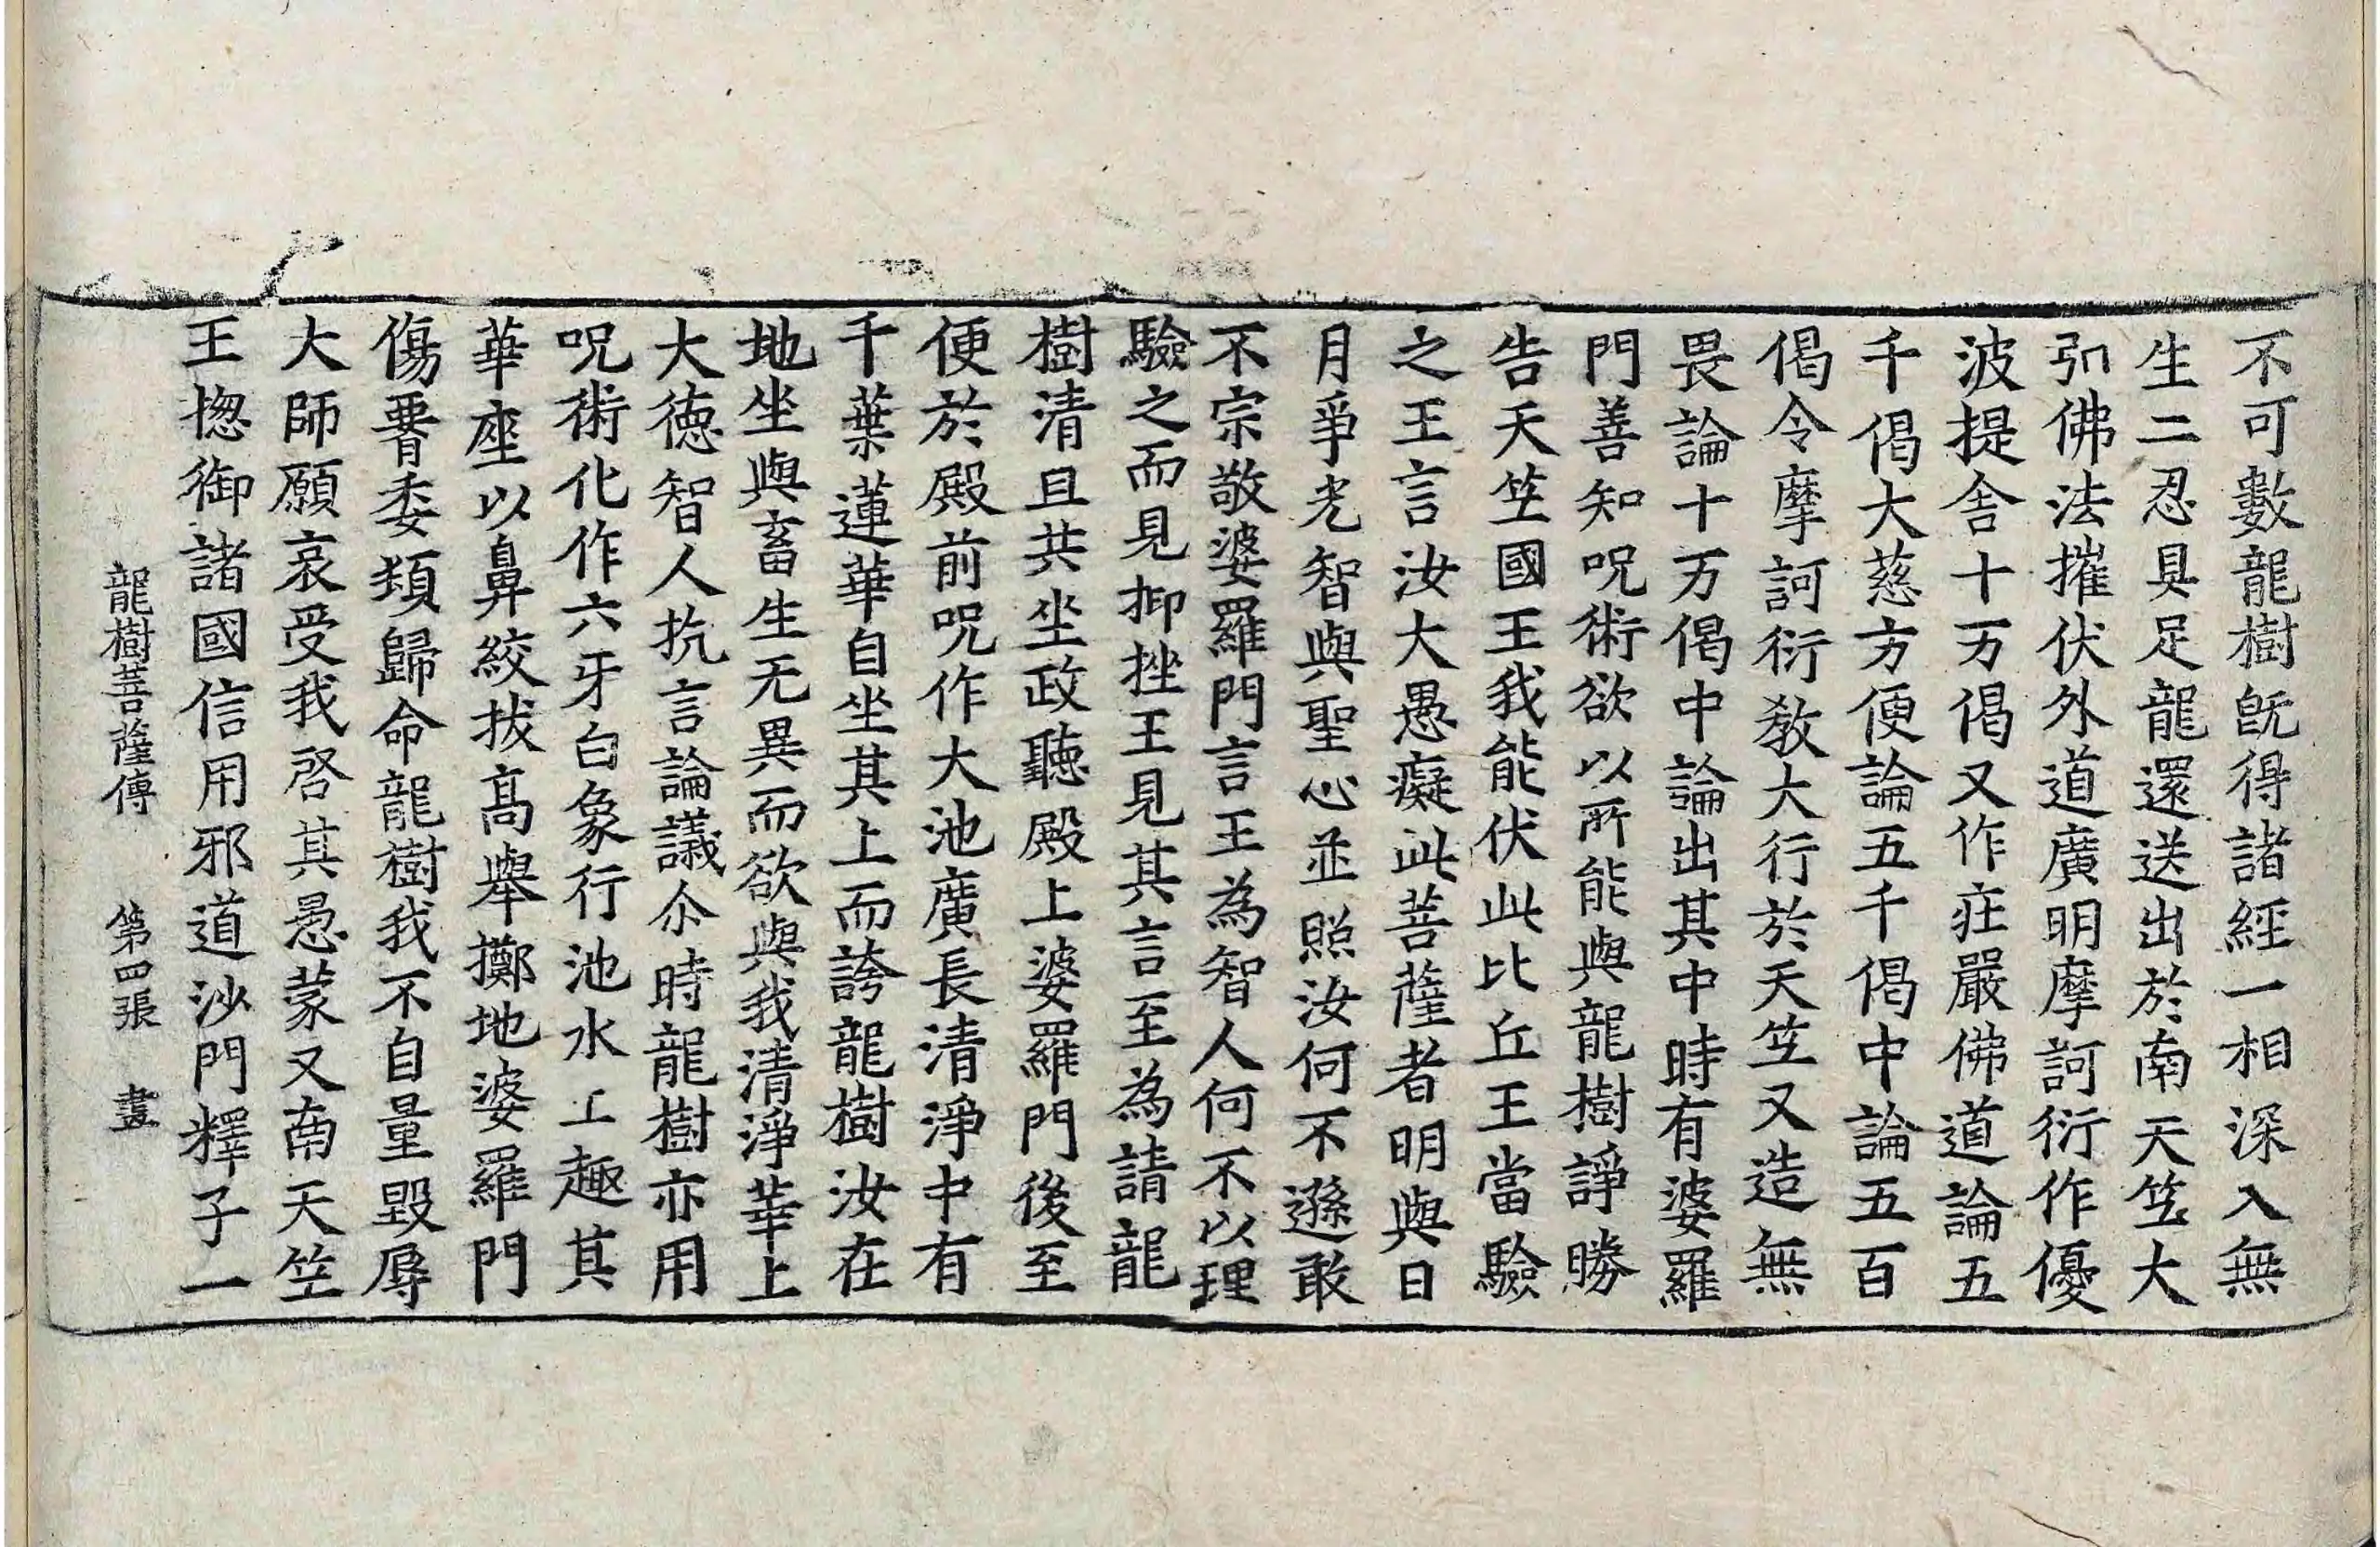 不可數龍樹旣得諸經一相深入無
生二忍具足龍還送出於南天竺大
弘佛法摧伏外道廣明摩訶衍作優
波提舍十万偈又作莊嚴佛道論五
千偈大慈方便論五千偈中論五百
偈令摩訶衍教大行於天竺又造無
畏論十万偈中論出其中時有婆羅
門善知呪術欲以所能與龍樹諍勝
告天竺國王我能伏此比丘王當驗
之王言汝大愚癡此菩薩者明與日
月爭光智與聖心並照汝何不遜敢
不宗敬婆羅門言王為智人何不以理
驗之而見抑挫王見其言至為請龍
樹清旦共坐政聽殿上婆羅門後至
便於殿前呪作大池廣長清淨中有
千葉蓮華自坐其上而誇龍樹汝在
地坐與畜生无異而欲與我清淨華上
大德智人抗言論議尒時龍樹亦用
呪術化作六牙白象行池水上趣其
華座以鼻絞拔高舉擲地婆羅門
傷𦝫委頓歸命龍樹我不自量毀辱
大師願哀受我啓其愚蒙又南天竺
王揔御諸國信用邪道沙門釋子一
龍樹菩薩傳 第四張 晝